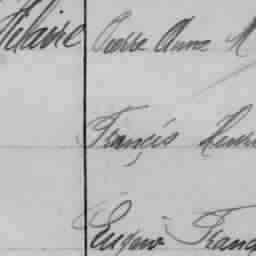 Hilaire Pierre Anne M
François Henri
Eugène Franç